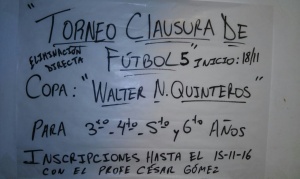 "TORNEO CLAUSURA DE
ELIMINACIÓN DIRECTA
FÚTBOL 5" INICIO: 18/11
COPA: "WALTER N. QUINTEROS"
PARA 3ro-4to-5to y 6to AÑOS
INSCRIPCIONES HASTA EL 15-11-16
CON EL PROFE CÉSAR GÓMEZ